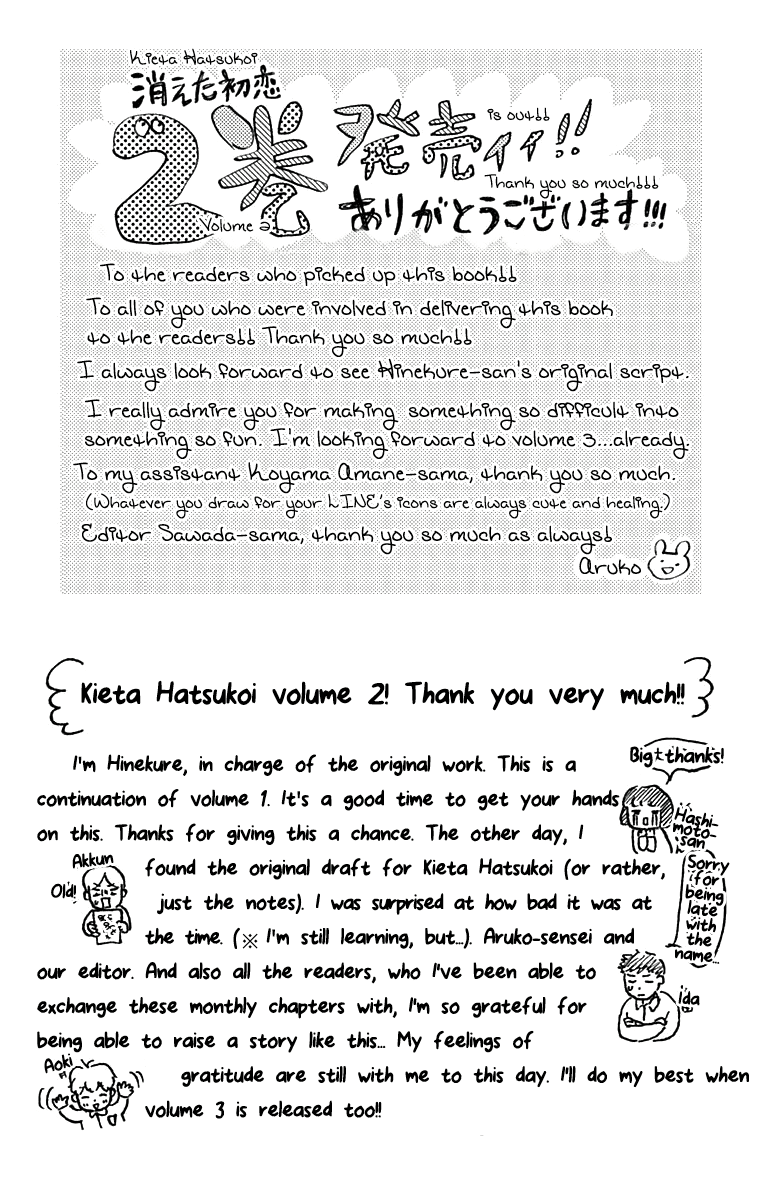 Kieta Hatsukoi
消えた初恋
2巻 発売イイ!!
is out!!
Volume 2
Thank you so much!!!
ありがとうございます!!!
To the readers who picked up this book!!
To all of you who were involved in delivering this book
to the readers!! Thank you so much!!
I always look forward to see Hinekure-san's original script.
I really admire you for making something so difficult into
something so fun. I'm looking forward to volume 3...already.
To my assistant Koyama Amane-sama, thank you so much.
(Whatever you draw for your LINE's icons are always cute and healing.)
Editor Sawada-sama, thank you so much as always!
Aruko
Kieta Hatsukoi volume 2! Thank you very much!!
I'm Hinekure, in charge of the original work. This is a
continuation of volume 1. It's a good time to get your hands
on this. Thanks for giving this a chance. The other day, I
found the original draft for Kieta Hatsukoi (or rather,
just the notes). I was surprised at how bad it was at
the time. (※ I'm still learning, but...). Aruko-sensei and
our editor. And also all the readers, who I've been able to
exchange these monthly chapters with, I'm so grateful for
being able to raise a story like this... My feelings of
gratitude are still with me to this day. I'll do my best when
volume 3 is released too!!
Big thanks!
Hashi-
moto-
san
Akkun
Old!
Sorry
for
being
late
with
the
name...
Ida
Aoki